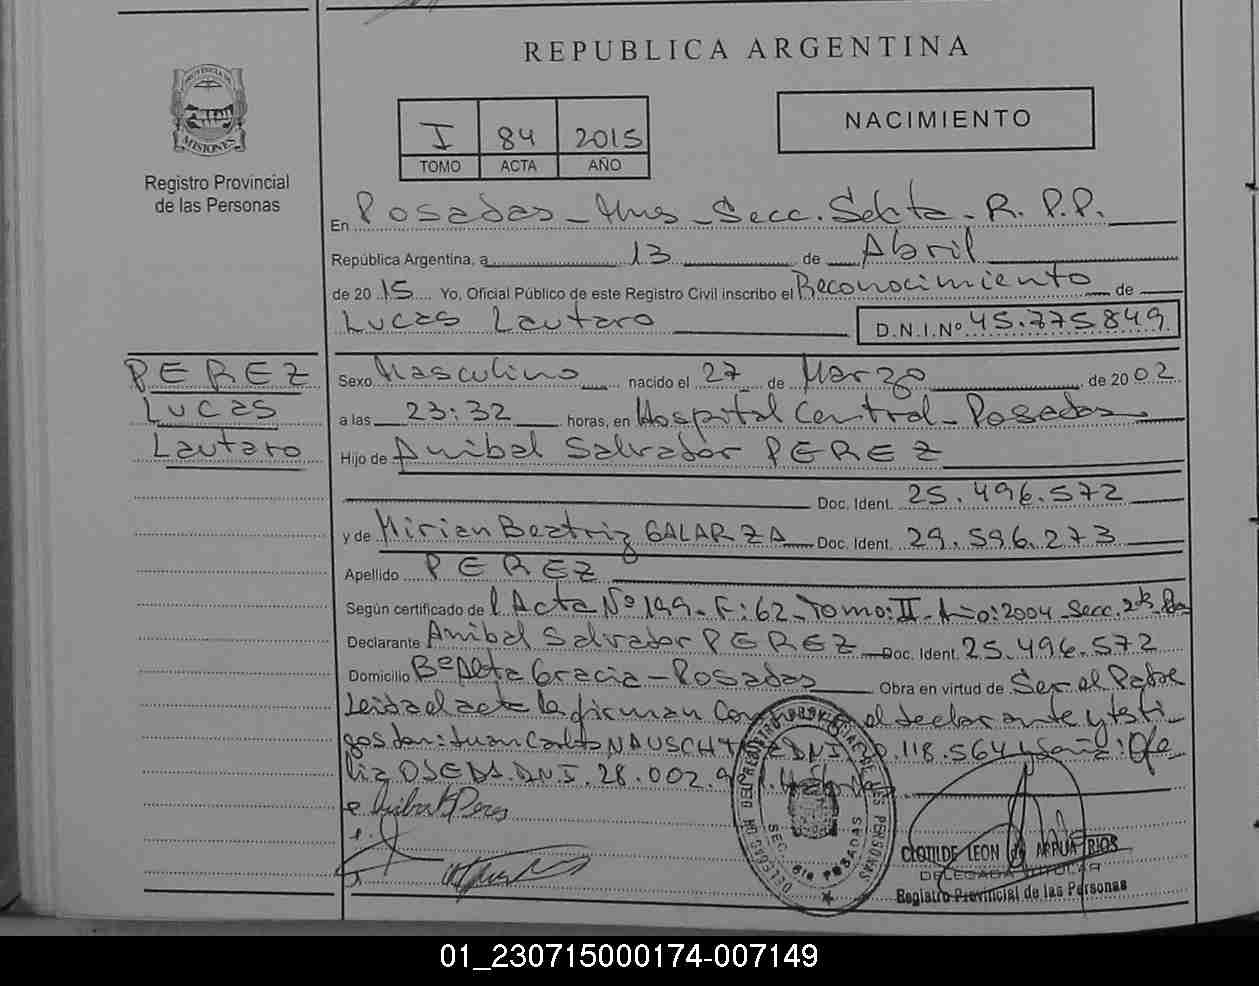 REPUBLICA ARGENTINA
PROVINCIA DE
MISIONES
Registro Provincial
de las Personas
I 84 2015
TOMO ACTA AÑO
NACIMIENTO
En Posadas - Mns - Secc. Sexta - R. P. P.
República Argentina, a 13 de Abril
de 2015 Yo, Oficial Público de este Registro Civil inscribo el Reconocimiento de
Lucas Lautaro D.N.I.Nº 45.775.849
PEREZ
Lucas
Lautaro
Sexo Masculino nacido el 27 de Marzo de 2002
a las 23:32 horas, en Hospital Central - Posadas
Hijo de Anibal Salvador PEREZ
Doc. Ident. 25.496.572
y de Mirian Beatriz GALARZA Doc. Ident. 29.596.273
Apellido PEREZ
Según certificado de Acta Nº 199 - F: 62 - Tomo: II - Año: 2004 - Secc. 2da
Declarante Anibal Salvador PEREZ Doc. Ident. 25.496.572
Domicilio Bº Alta Gracia - Posadas Obra en virtud de Ser el Padre
Leida el acta la firman el declarante y testi-
gos Juan Carlos DNI .118.564 y Ofe-
lia OJEDA DNI. 28.002.
DEL REGISTRO PROVINCIAL DE LAS PERSONAS
SEC. 6ta POSADAS
CLOTILDE LEON de RIOS
DELEGADA TITULAR
Registro Provincial de las Personas
01_230715000174-007149